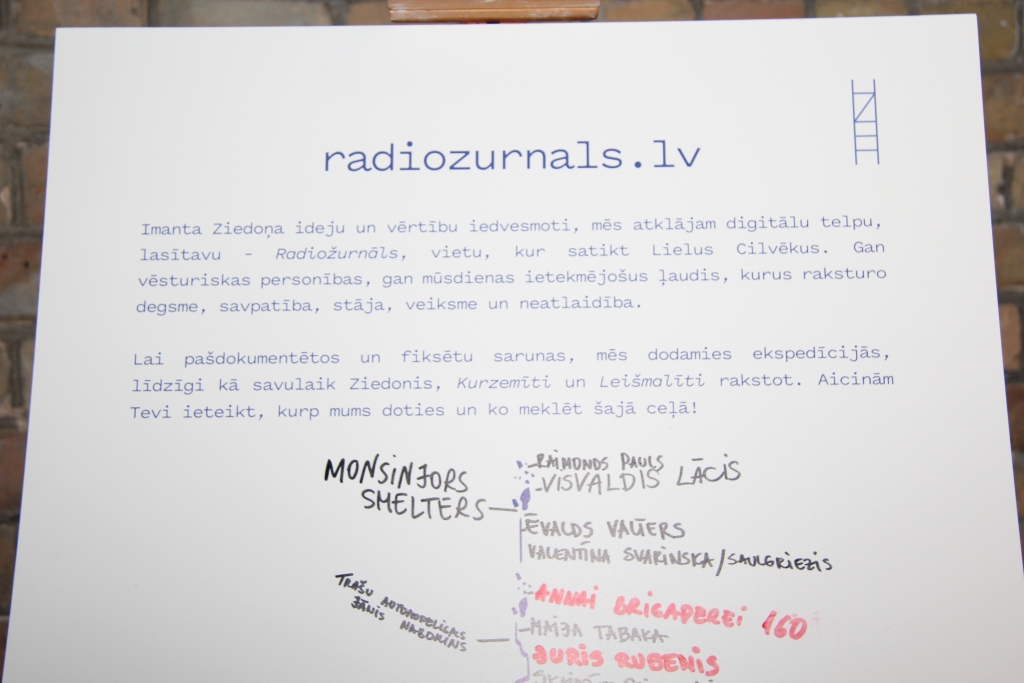 radiozurnals.lv
Imanta Ziedoņa ideju un vērtību iedvesmoti, mēs atklājam digitālu telpu,
lasītavu - Radiožurnāls, vietu, kur satikt Lielus Cilvēkus. Gan
vēsturiskas personības, gan mūsdienas ietekmējošus ļaudis, kurus raksturo
degsme, savpatība, stāja, veiksme un neatlaidība.
Lai pašdokumentētos un fiksētu sarunas, mēs dodamies ekspedīcijās,
līdzīgi kā savulaik Ziedonis, Kurzemīti un Leišmalīti rakstot. Aicinām
Tevi ieteikt, kurp mums doties un ko meklēt šajā ceļā!
RAIMONDS PAULS
VISVALDIS LĀCIS
MONSINJORS
SMELTERS
ĒVALDS VALTERS
VALENTĪNA SVARINSKA/SAULGRIEZIS
ANNAI BRIGADEREI 160
TRAŠU
JĀNIS
MAIJA TABAKA
JURIS RUBENIS